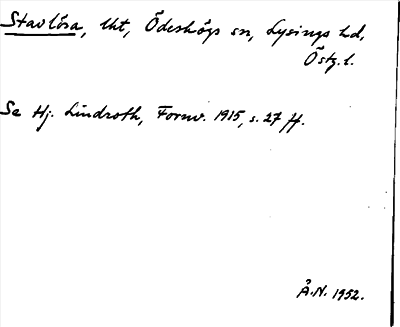 Stavlösa, lht, Ödeshögs sn, Lysings hd,
Östg. l.
Se Hj. Lindroth, Fornv. 1915, s. 27 ff.
Å.N. 1952.